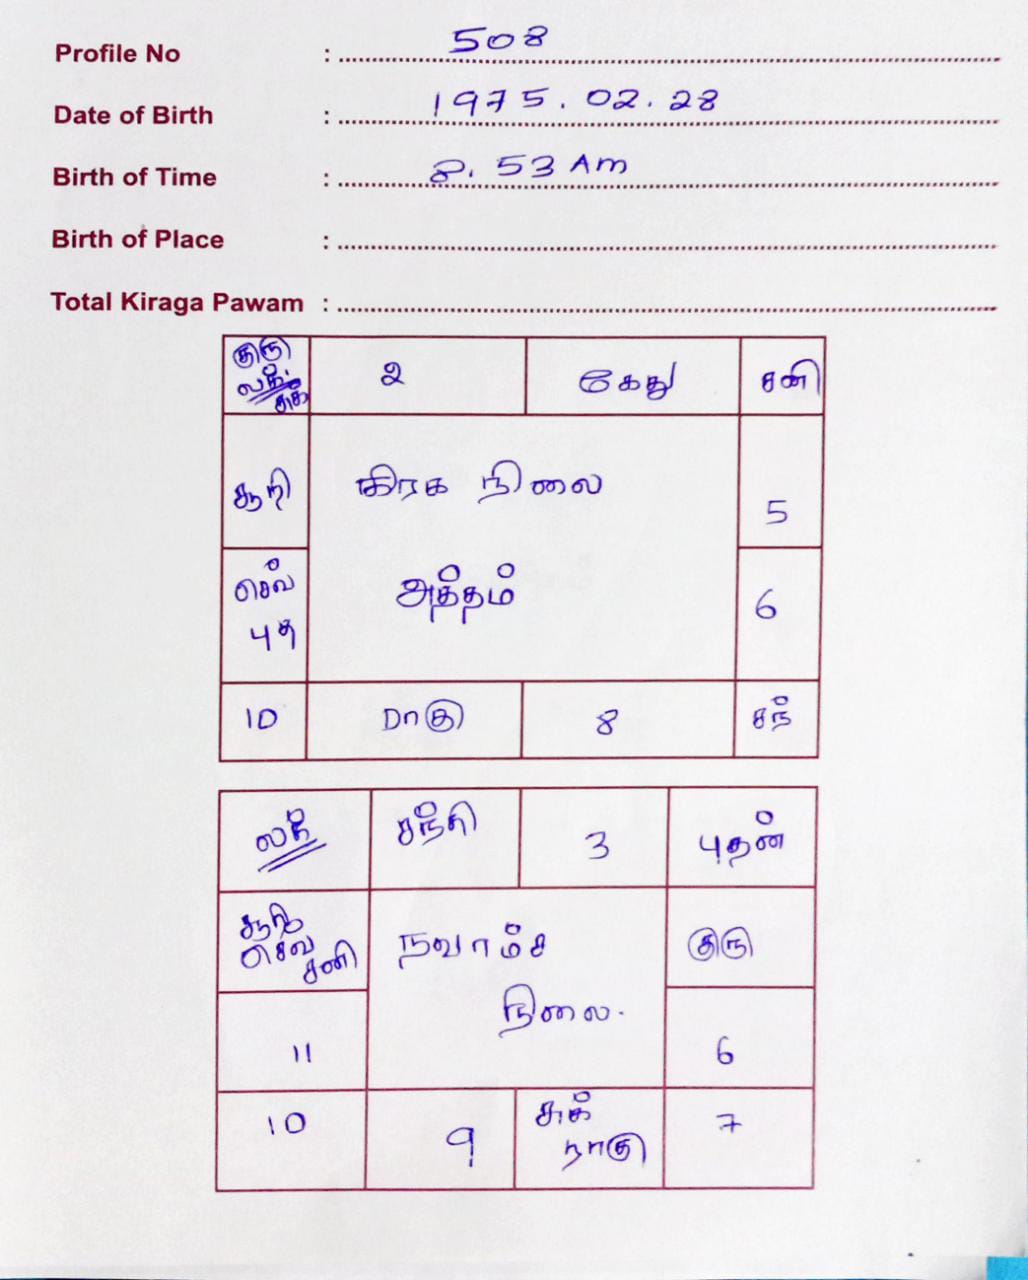 Profile No : 508
Date of Birth : 1975.02.28
Birth of Time : 8.53 Am
Birth of Place :
Total Kiraga Pawam :
குரு
லக்.
சுக்
2
கேது
சனி
சூரி
கிரக நிலை
5
செவ்
புத
அத்தம்
6
10
ராகு
8
சந்
லக்
சந்தி
3
புதன்
சூரி
செவ்
சனி
நவாம்ச
குரு
நிலை.
11
6
10
9
சுக்
ராகு
7